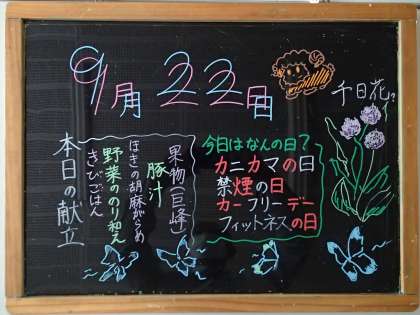 9月22日
千日花?
今日はなんの日?
カニカマの日
禁煙の日
カーフリーデー
フィットネスの日
本日の献立
きびごはん
野菜ののり和え
ほきの胡麻がらめ
豚汁
果物(巨峰)